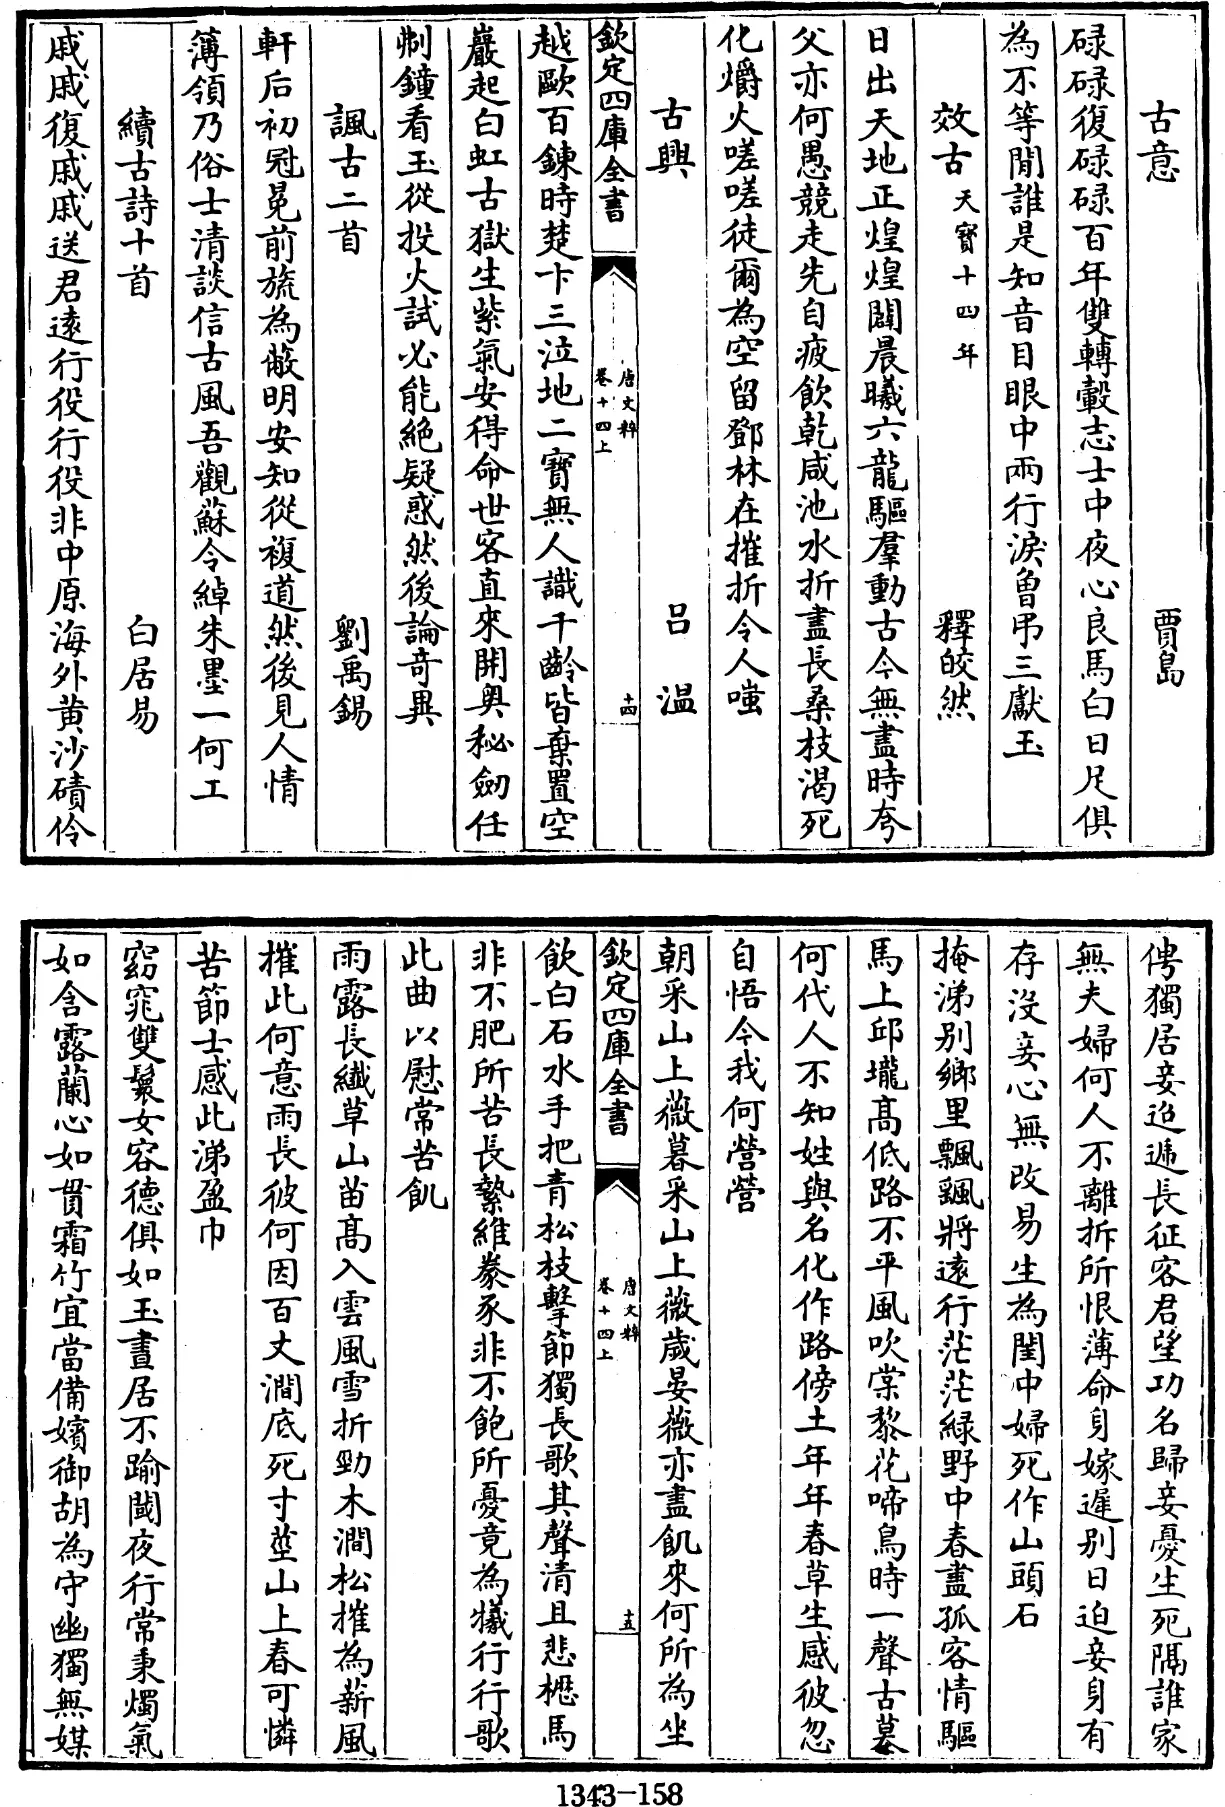 古意　賈島
碌碌復碌碌百年雙轉轂志士中夜心良馬白日足俱
為不等閒誰是知音目眼中兩行淚曾弔三獻玉
效古天寶十四年　釋皎然
日出天地正煌煌闢晨曦六龍驅羣動古今無盡時夸
父亦何愚競走先自疲飲乾咸池水折盡長桑枝渴死
化爝火嗟嗟徒爾為空留鄧林在摧折令人嗤
古興　吕温
欽定四庫全書
唐文粹
卷十四上
十四
越歐百鍊時楚卞三泣地二寶無人識千齡皆棄置空
巖起白虹古獄生紫氣安得命世客直來開奥秘劒任
剸鐘看玉從投火試必能絶疑惑然後論奇異
諷古二首　劉禹錫
軒后初冠冕前旒為蔽明安知從複道然後見人情
簿領乃俗士清談信古風吾觀蘇令綽朱墨一何工
續古詩十首　白居易
戚戚復戚戚送君遠行役行役非中原海外黄沙磧伶
俜獨居妾迢遞長征客君望功名歸妾憂生死隔誰家
無夫婦何人不離拆所恨薄命身嫁遲别日迫妾身有
存没妾心無改易生為閨中婦死作山頭石
掩涕别鄉里飄颻將遠行茫茫緑野中春盡孤客情驅
馬上邱壠髙低路不平風吹棠黎花啼鳥時一聲古墓
何代人不知姓與名化作路傍土年年春草生感彼忽
自悟今我何營營
朝采山上薇暮采山上薇歲晏薇亦盡飢來何所為坐
欽定四庫全書
唐文粹
卷十四上
十五
飲白石水手把青松枝擊節獨長歌其聲清且悲櫪馬
非不肥所苦長縶維豢豕非不飽所憂竟為犧行行歌
此曲以慰常苦飢
雨露長纖草山苗髙入雲風雪折勁木澗松摧為薪風
摧此何意雨長彼何因百丈澗底死寸莖山上春可憐
苦節士感此涕盈巾
窈窕雙鬟女容德俱如玉晝居不踰閾夜行常秉燭氣
如含露蘭心如貫霜竹宜當備嬪御胡為守幽獨無媒
1343-158